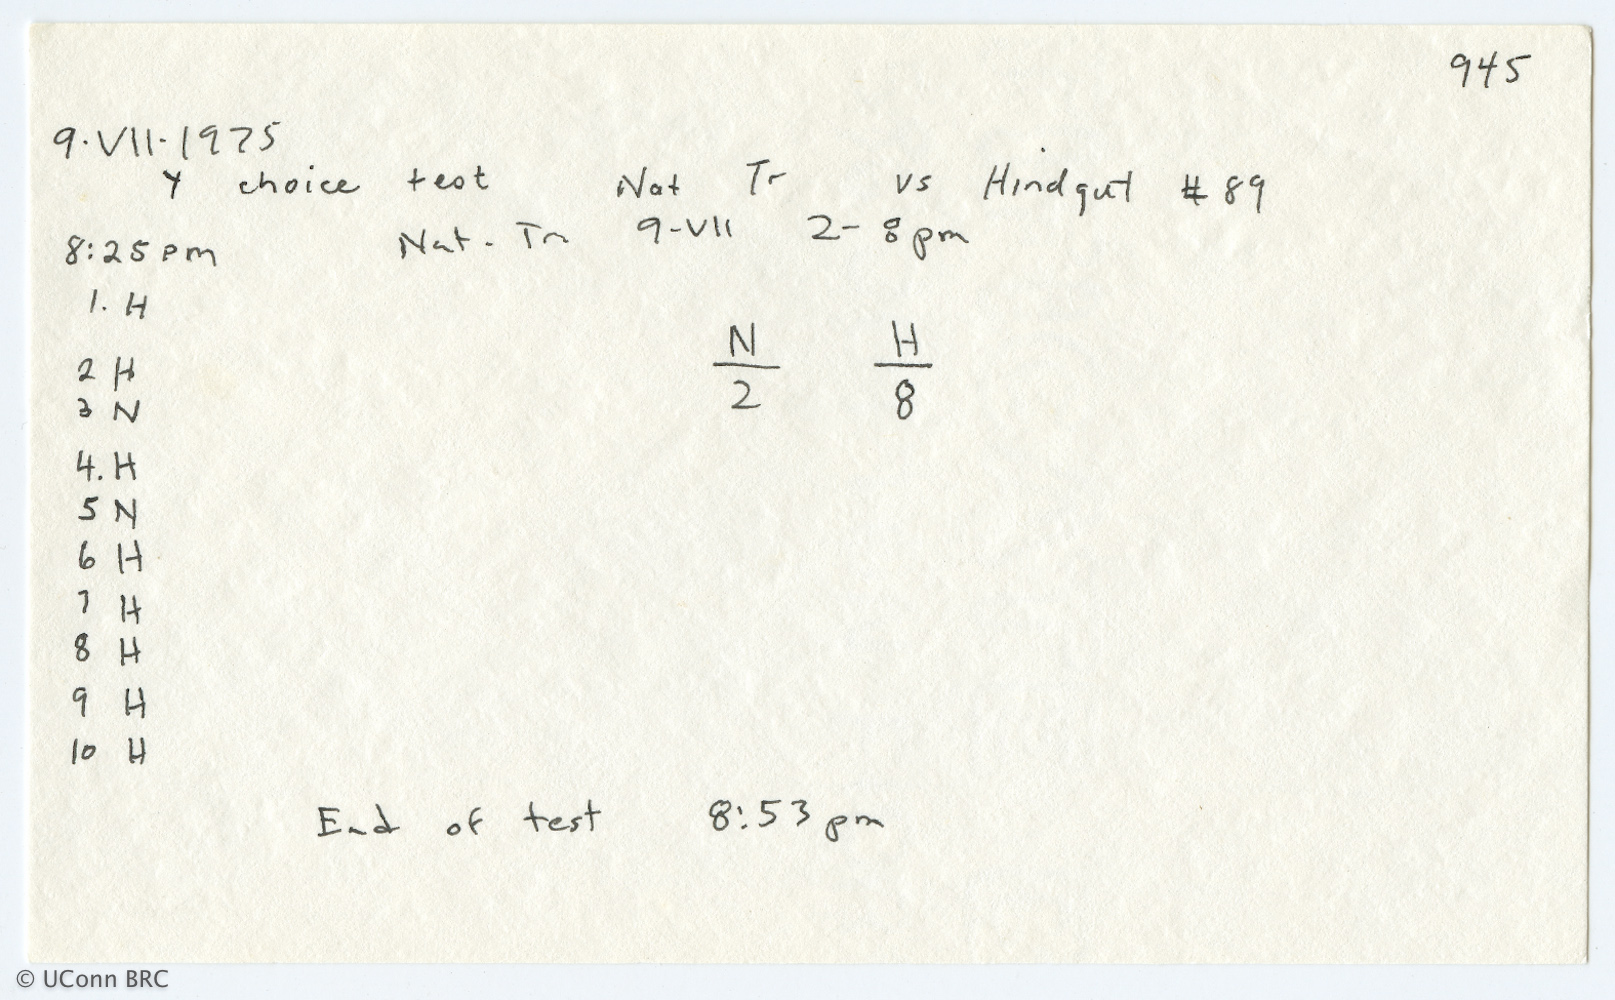 945
9·VII·1975
Y choice test Nat Tr vs Hindgut # 89
Nat. Tr 9-VII 2-8pm
8:25 pm
1. H
2 H
3 N
4. H
5 N
6 H
7 H
8 H
9 H
10 H
N H
2 8
End of test 8:53 pm
© UConn BRC